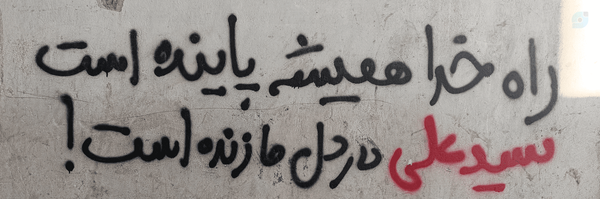 راه خدا همیشه پاینده است
سیدعلی در دل ما زنده است!